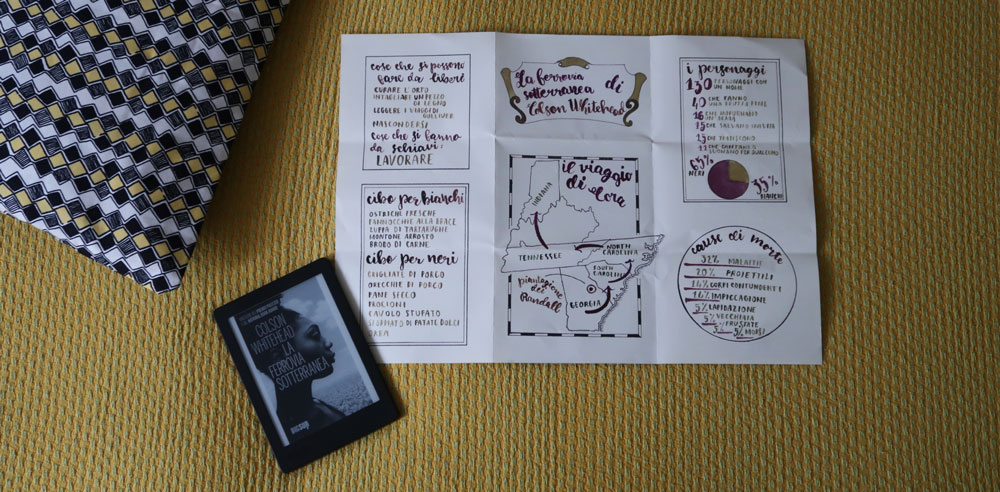 cose che si possono
fare da liberi
CURARE L'ORTO
INTAGLIARE UN PEZZO
DI LEGNO
LEGGERE I VIAGGI DI
GULLIVER
NASCONDERSI
cose che si fanno
da schiavi:
LAVORARE
cibo per bianchi
OSTRICHE FRESCHE
PANNOCCHIE ALLA BRACE
ZUPPA DI TARTARUGHE
MONTONE ARROSTO
BRODO DI CARNE
cibo per neri
ORECCHIE DI PORCO
PANE SECCO
PROCIONI
CAVOLO STUFATO
SFORMATO DI PATATE DOLCI
RAPA
La ferrovia
sotterranea di
Colson Whitehead
il viaggio
di Cora
INDIANA
TENNESSEE
NORTH
CAROLINA
SOUTH
CAROLINA
GEORGIA
piantagione
dei
Randall
i personaggi
130 PERSONAGGI CON
UN NOME
40 CHE FANNO
16
15
15 CHE TRADISCONO
11
SUONANO PER QUALCUNO
65%
NERI
35%
BIANCHI
cause di morte
32% MALATTIE
20% PROIETTILI
14% CORPI CONTUNDENTI
14% IMPICCAGIONE
5% LAPIDAZIONE
5% VECCHIAIA
5% FRUSTATE
5% MORSI
COLSON
WHITEHEAD
LA
FERROVIA
SOTTERRANEA